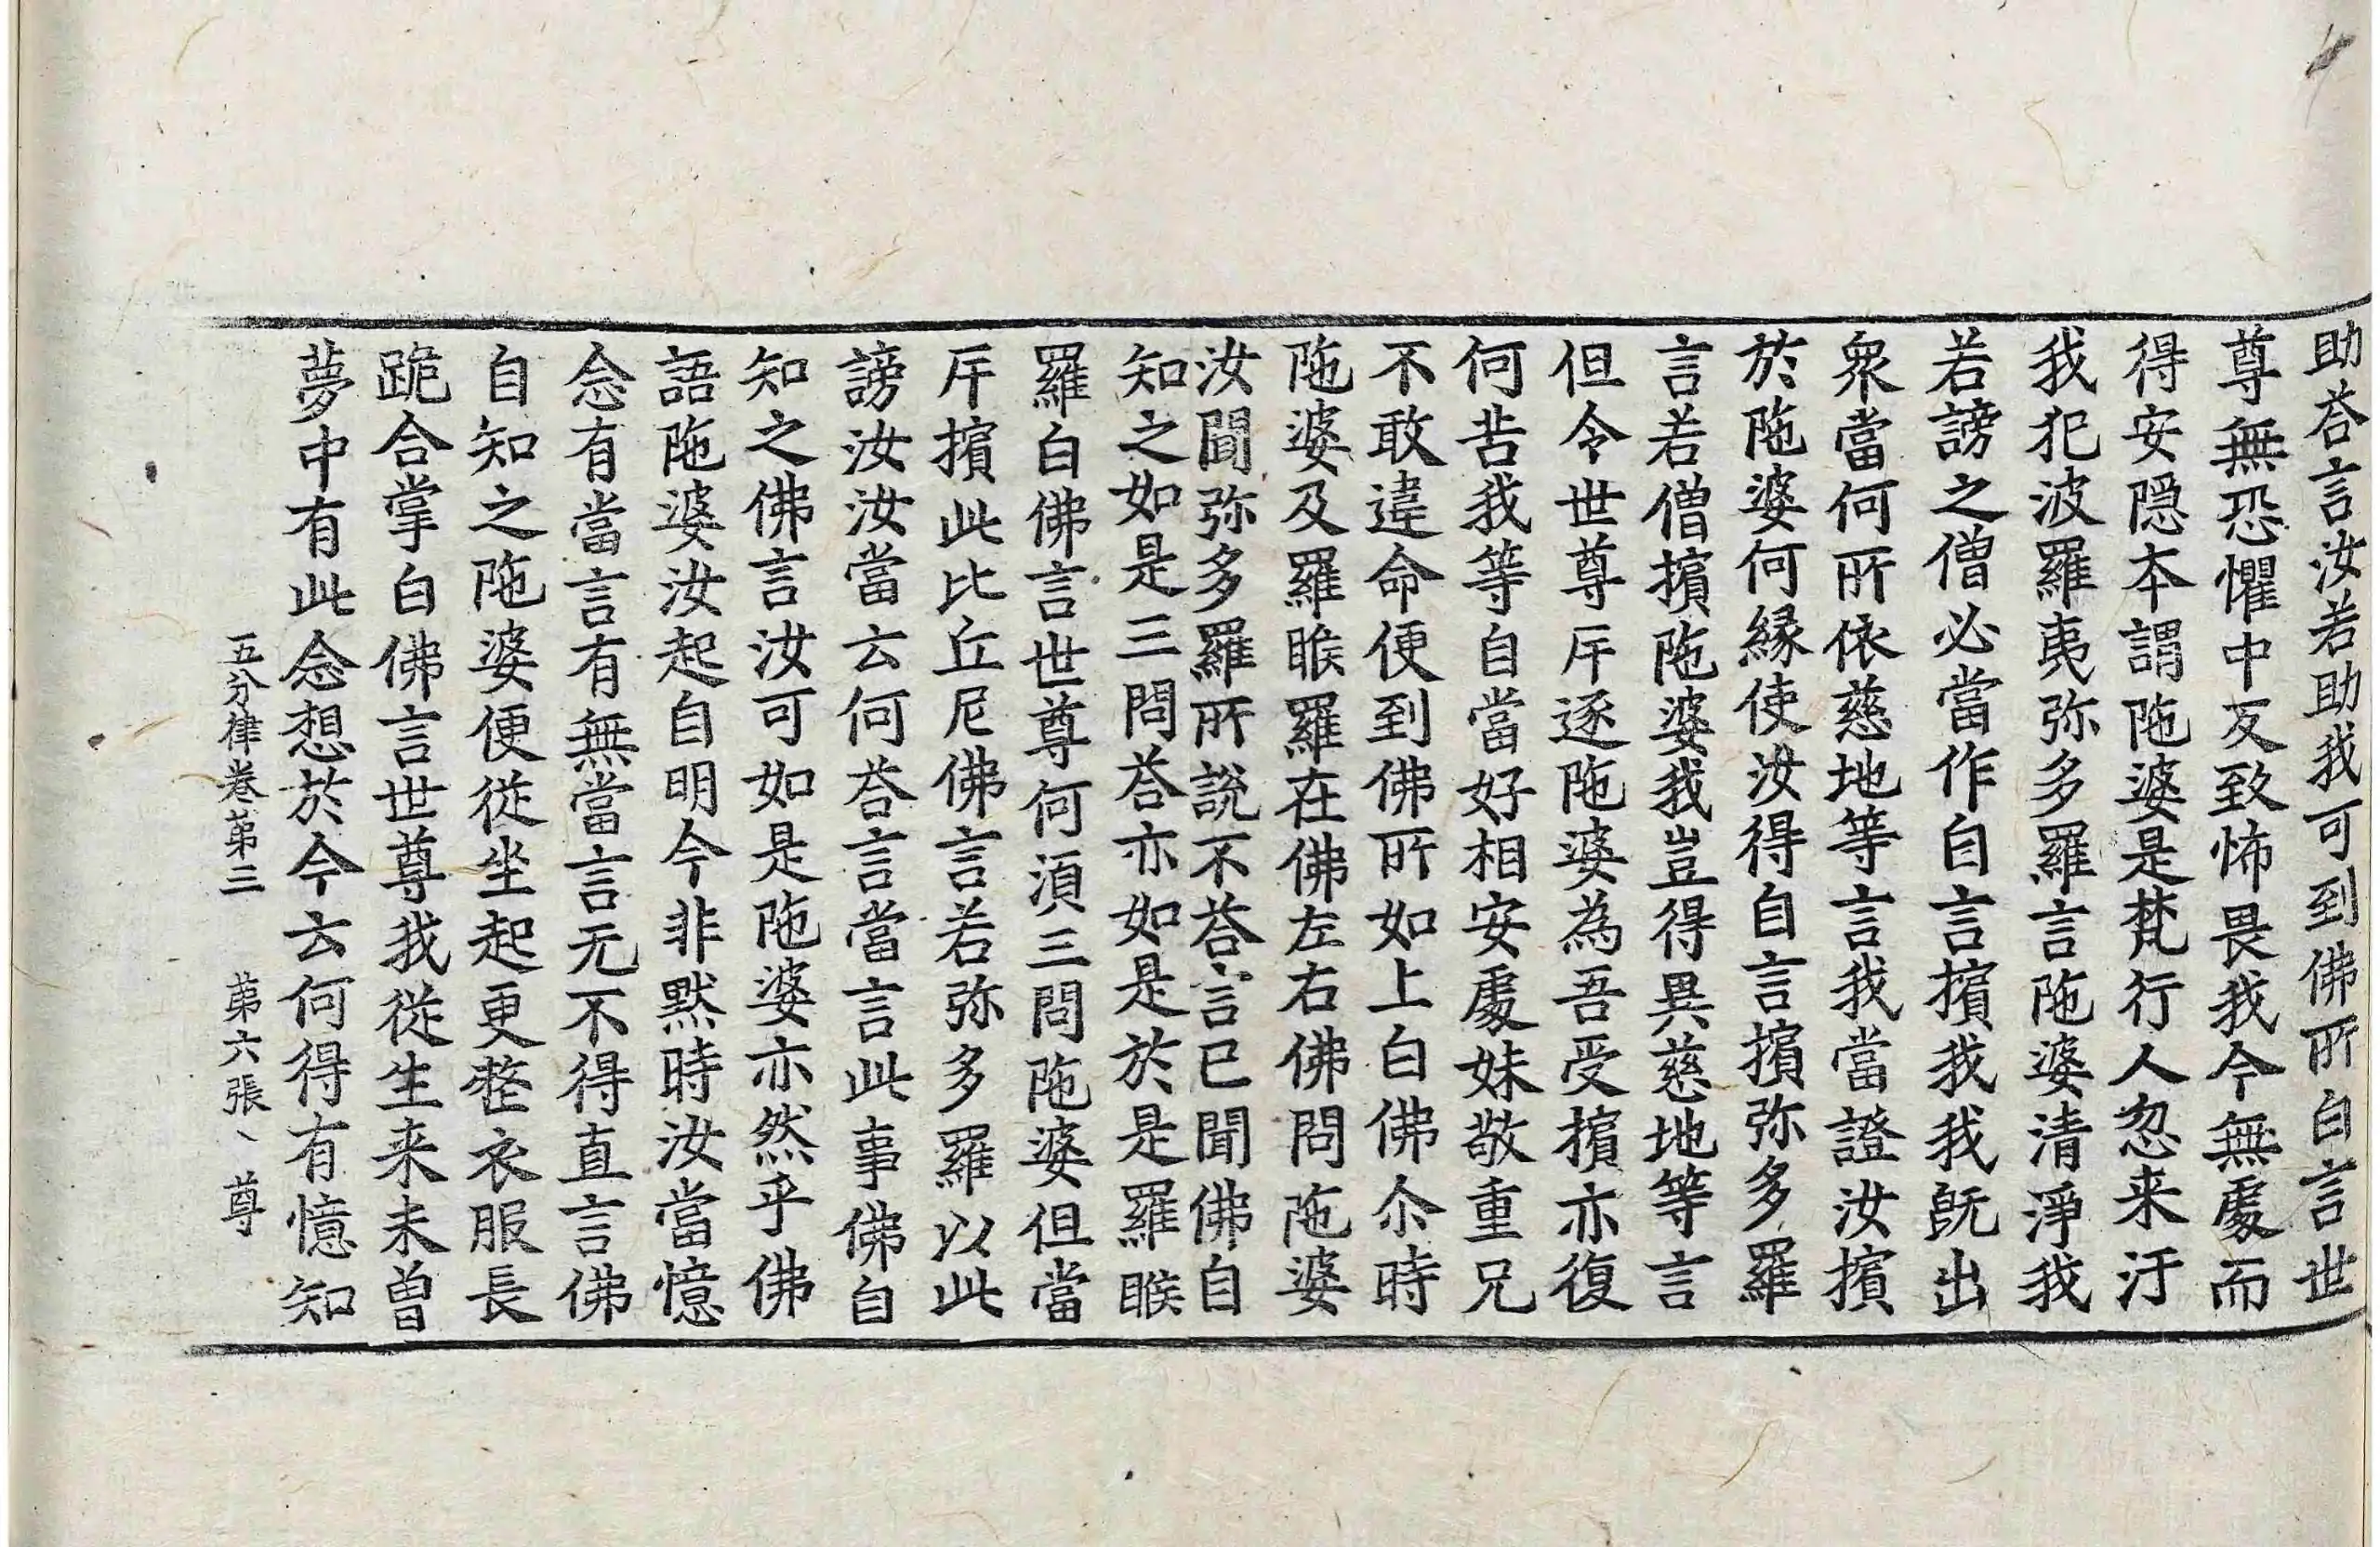 助荅言汝若助我可到佛所白言世
尊無恐懼中反致怖畏我今無處而
得安隱本謂陁婆是梵行人忽来汙
我犯波羅夷弥多羅言陁婆清淨我
若謗之僧必當作自言擯我我旣出
衆當何所依慈地等言我當證汝擯
於陁婆何縁使汝得自言擯弥多羅
言若僧擯陁婆我豈得異慈地等言
但令世尊斥逐陁婆為吾受擯亦復
何苦我等自當好相安處妹敬重兄
不敢違命便到佛所如上白佛尒時
陁婆及羅睺羅在佛左右佛問陁婆
汝聞弥多羅所說不荅言已聞佛自
知之如是三問荅亦如是於是羅睺
羅白佛言世尊何湏三問陁婆但當
斥擯此比丘尼佛言若弥多羅以此
謗汝汝當云何荅言當言此事佛自
知之佛言汝可如是陁婆亦然乎佛
語陁婆汝起自明今非默時汝當憶
念有當言有無當言无不得直言佛
自知之陁婆便從坐起更整衣服長
跪合掌白佛言世尊我從生来未曽
夢中有此念想於今云何得有憶知
五分律卷第三　第六張、尊